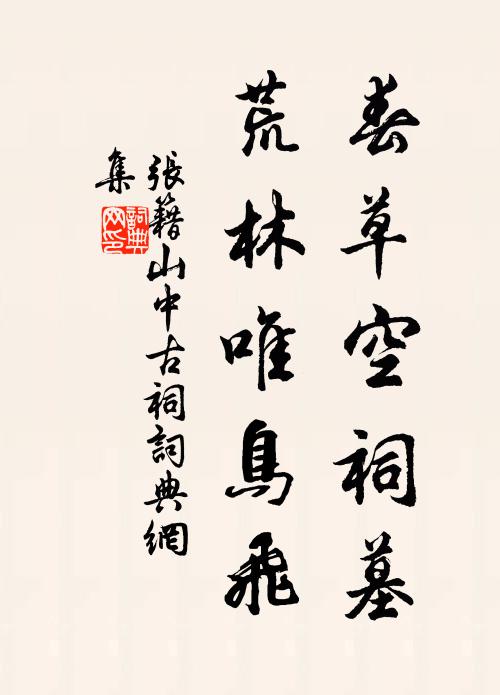 春草空祠墓
荒林唯鳥飛
張籍山中古祠詞典網
集
詞典
网印